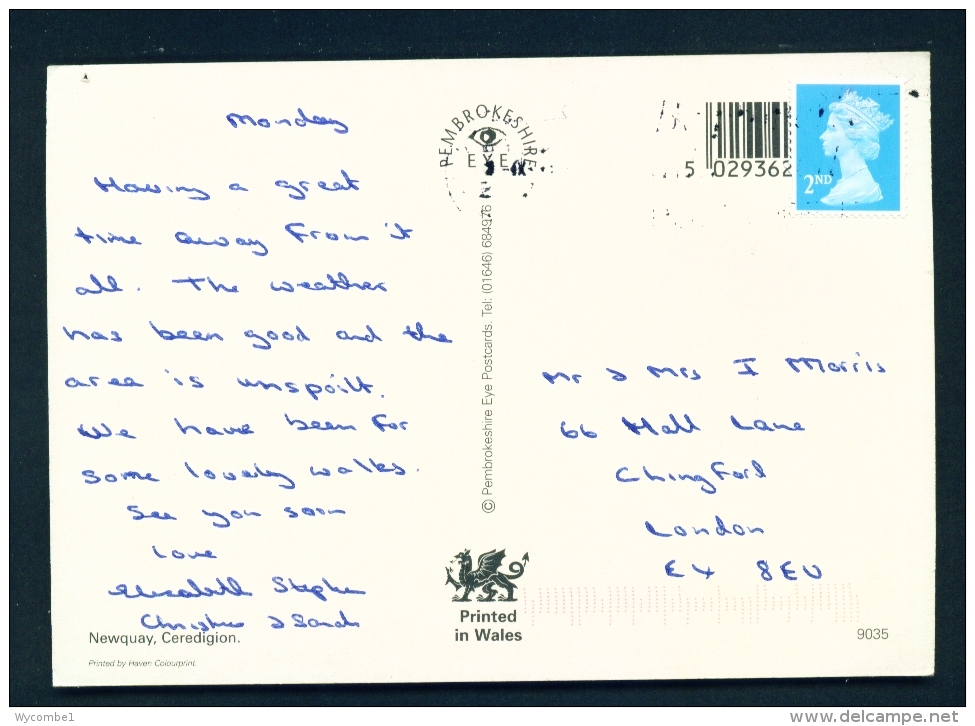 Monday
Having a great
time away from it
all. The weather
has been good and the
area is unspoilt.
We have been for
some lovely walks.
See you soon
Love
Elizabeth Stephen
Christine & Sarah
Newquay, Ceredigion.
Printed by Haven Colourprint.
PEMBROKESHIRE
EYE
© Pembrokeshire Eye Postcards. Tel: (01646) 684976
Printed
in Wales
5 029362
2ND
Mr & Mrs I Morris
66 Hall Lane
Chingford
London
E4 8EU
9035
Wycombe1
www.delcampe.net